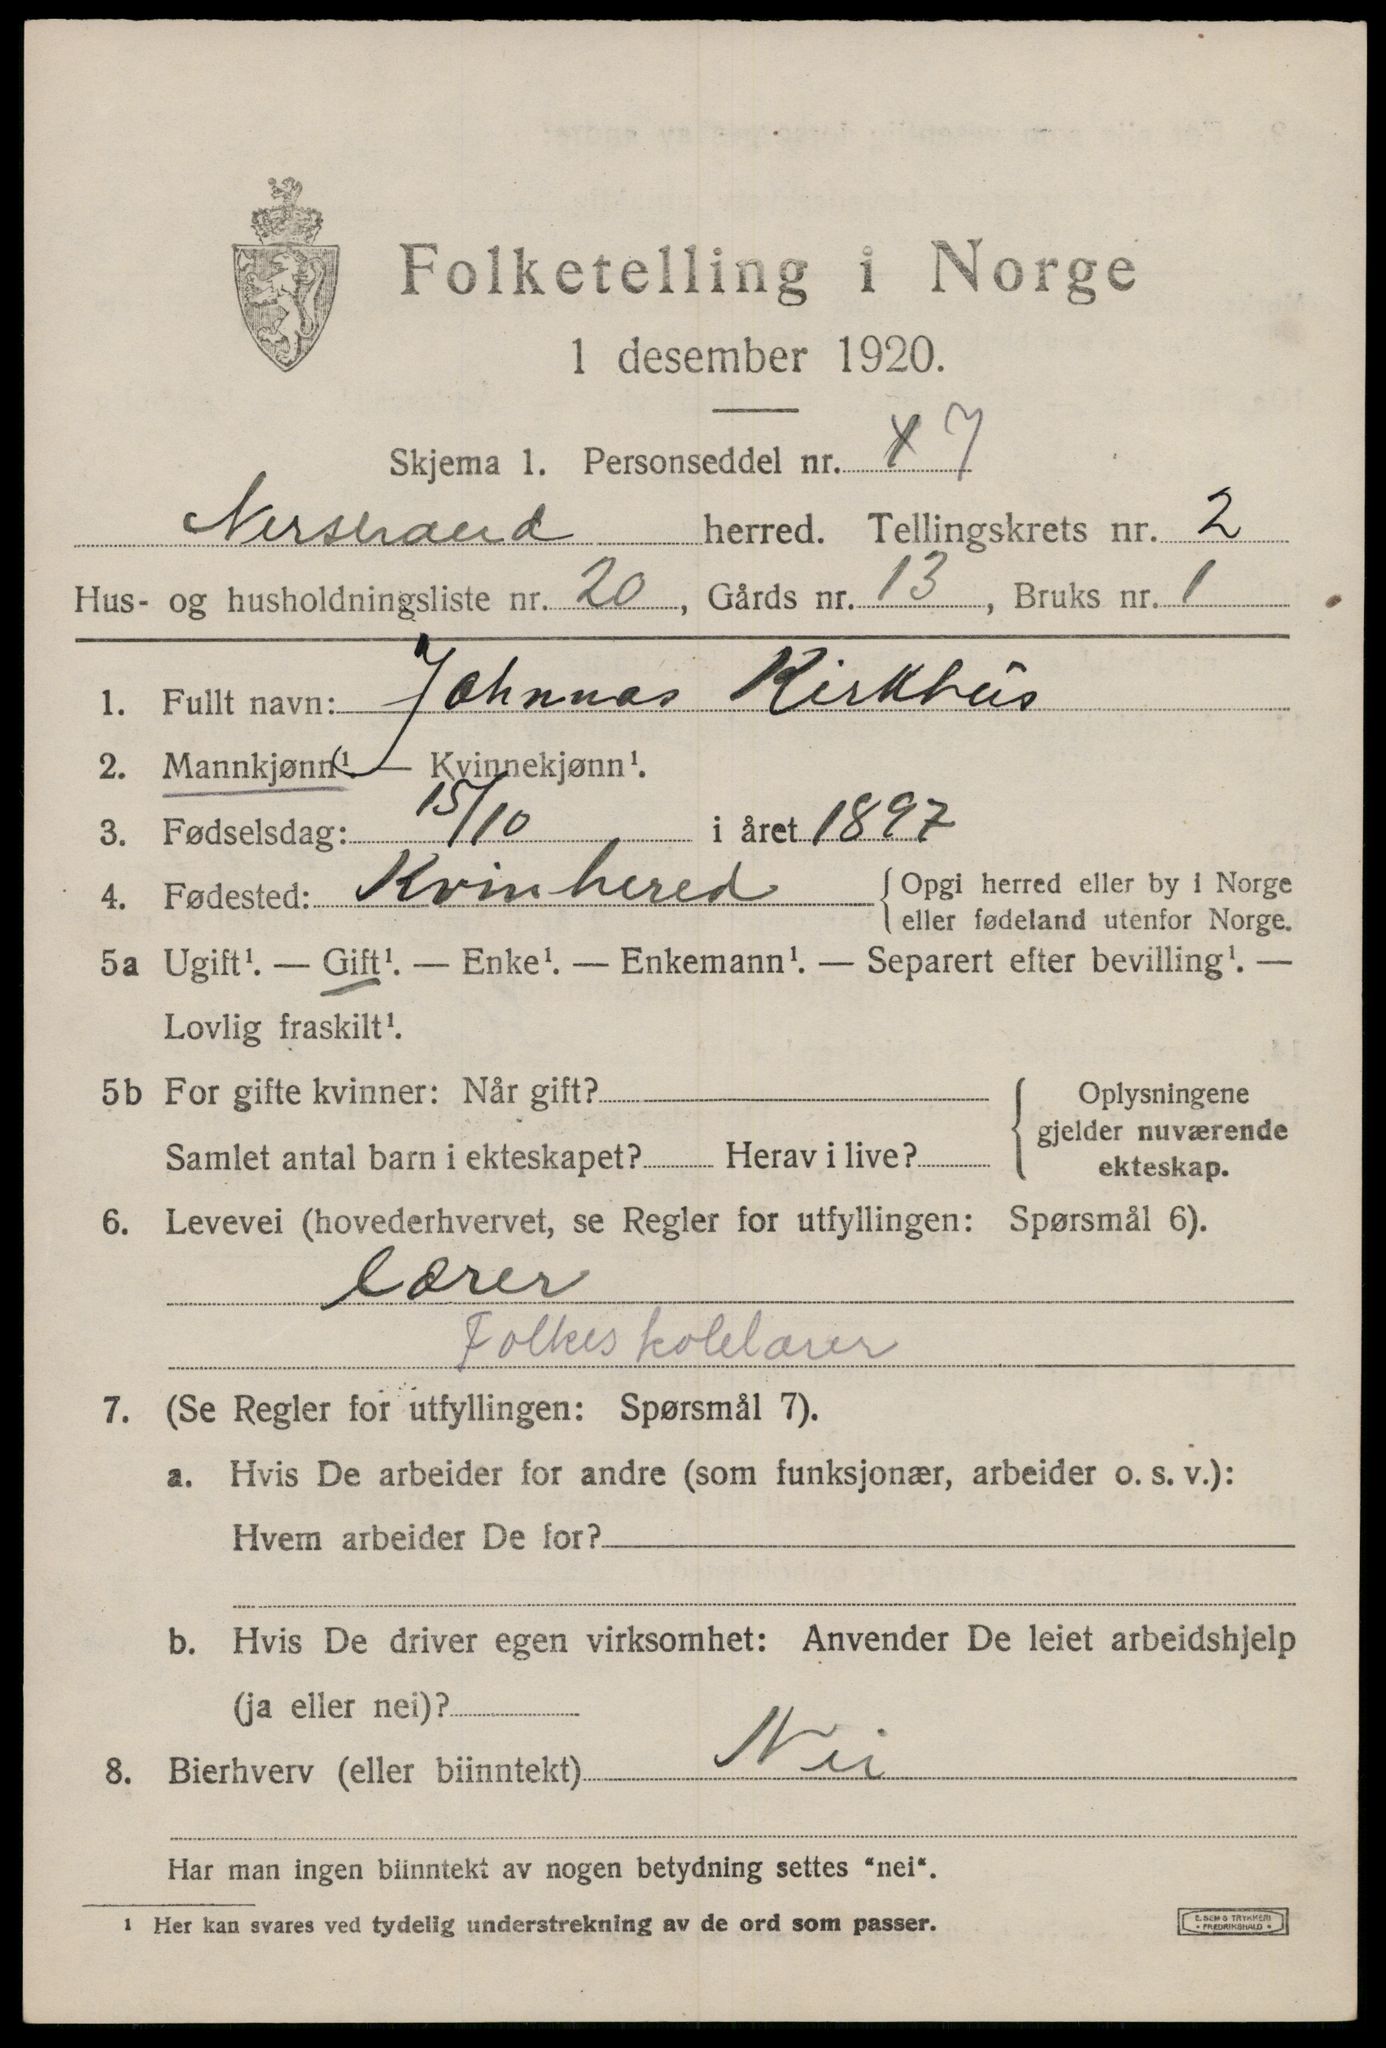 Folketelling i Norge
1 desember 1920.
Skjema 1. Personseddel nr. 7
Nerstrand herred. Tellingskrets nr. 2
Hus- og husholdningsliste nr. 20, Gårds nr. 13, Bruks nr. 1
1. Fullt navn: Johnnas Kirkhus
2. Mannkjønn¹. — Kvinnekjønn¹.
3. Fødselsdag: 15/10 i året 1897
4. Fødested: Kvinhered { Opgi herred eller by i Norge
eller fødeland utenfor Norge.
5a Ugift¹. — Gift¹. — Enke¹. — Enkemann¹. — Separert efter bevilling¹. —
Lovlig fraskilt¹.
5b For gifte kvinner: Når gift?
Samlet antal barn i ekteskapet? Herav i live?
Oplysningene
gjelder nuværende
ekteskap.
6. Levevei (hovederhvervet, se Regler for utfyllingen: Spørsmål 6).
Lærer
Folkeskolelærer
7. (Se Regler for utfyllingen: Spørsmål 7).
a. Hvis De arbeider for andre (som funksjonær, arbeider o. s. v.):
Hvem arbeider De for?
b. Hvis De driver egen virksomhet: Anvender De leiet arbeidshjelp
(ja eller nei)?
8. Bierhverv (eller biinntekt) Nei
Har man ingen biinntekt av nogen betydning settes "nei".
1 Her kan svares ved tydelig understrekning av de ord som passer.
E. SEM'S TRYKKERI
• FREDRIKSHALD •